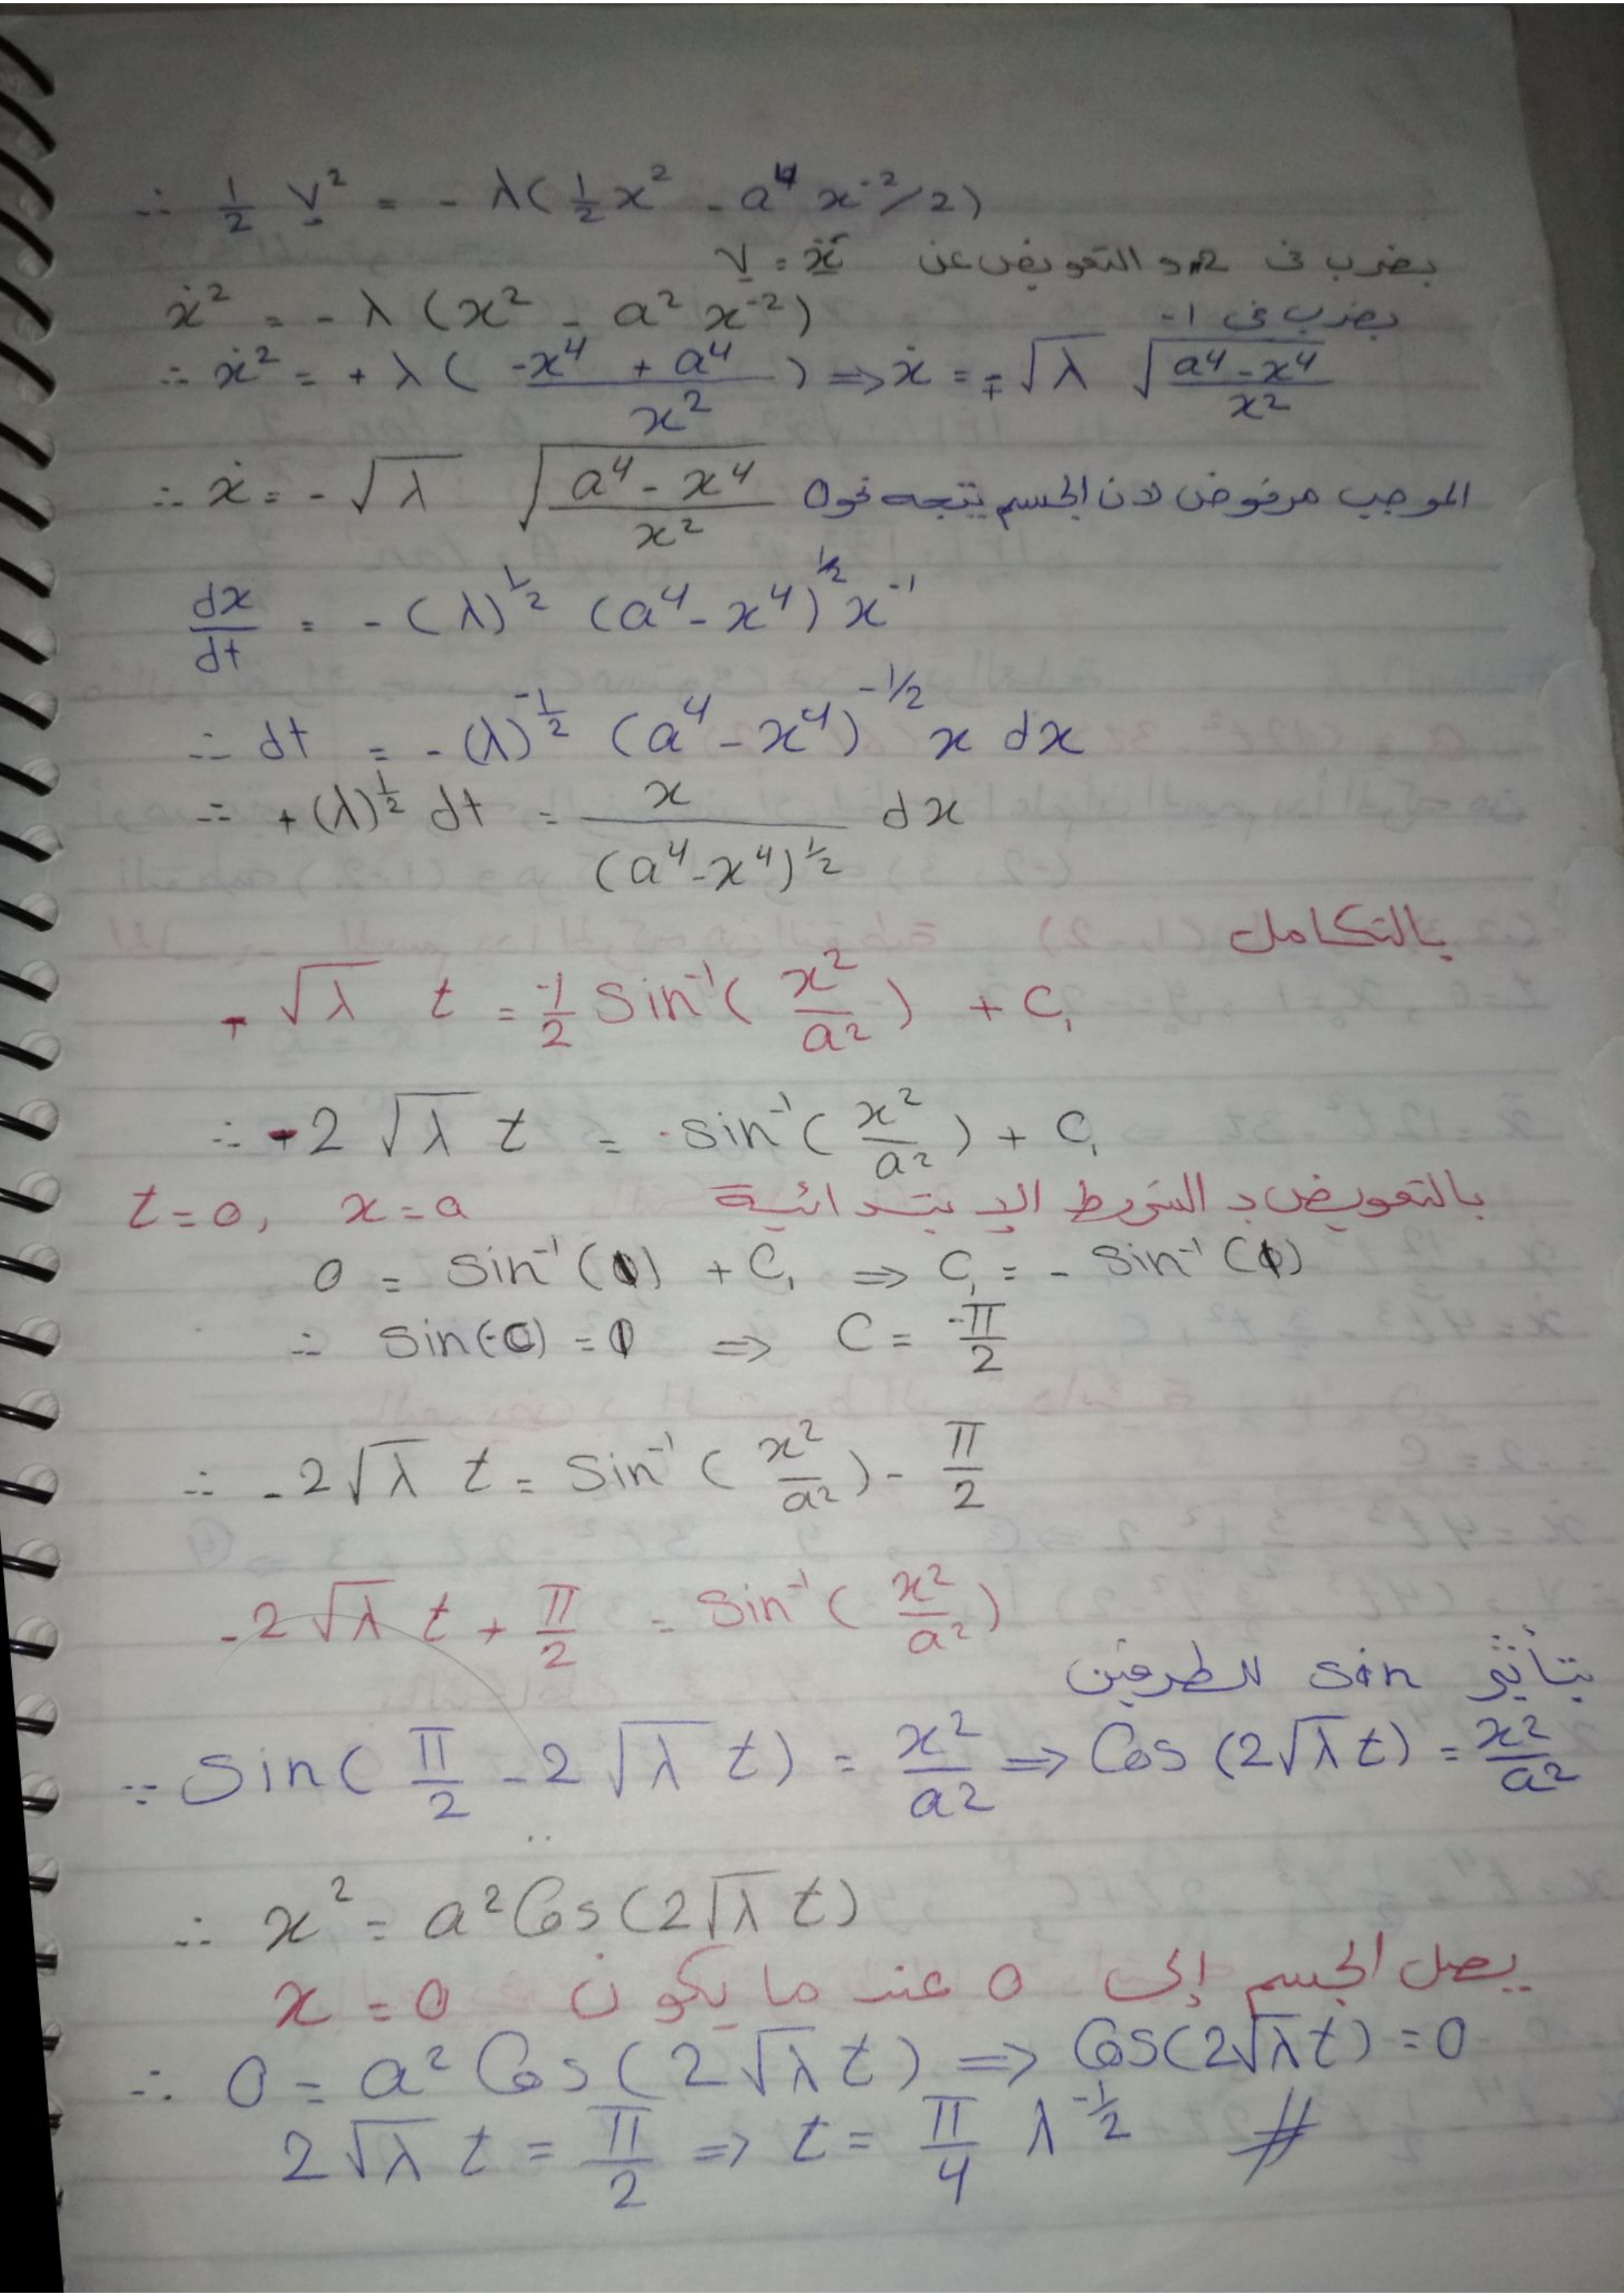 ∴ 1/2 v² = - λ(1/2 x² - a⁴ x⁻²/2)
بضرب في 2 و التعويض عن v = ẋ
ẋ² = - λ (x² - a² x⁻²) بضرب في 1-
∴ ẋ² = + λ ( (-x⁴ + a⁴)/x² ) ⇒ ẋ = ∓ √λ √((a⁴-x⁴)/x²)
∴ ẋ = - √λ √((a⁴ - x⁴)/x²) الموجب مرفوض لان الجسم يتجه نحو 0
dx/dt = - (λ)^1/2 (a⁴ - x⁴)^1/2 x⁻¹
∴ dt = - (λ)^-1/2 (a⁴ - x⁴)^-1/2 x dx
∴ + (λ)^1/2 dt = x/(a⁴-x⁴)^1/2 dx
بالتكامل
- √λ t = 1/2 Sin⁻¹( x²/a² ) + C₁
∴ -2 √λ t = sin⁻¹( x²/a² ) + C₁
بالتعويض بـ الشروط الإبتدائية t=0, x=a
0 = Sin⁻¹(1) + C₁ ⇒ C₁ = - Sin⁻¹(1)
∴ Sin(-C) = 1 ⇒ C = -π/2
∴ -2√λ t = Sin⁻¹( x²/a² ) - π/2
-2√λ t + π/2 = Sin⁻¹( x²/a² )
بتأثير sin للطرفين
∴ Sin( π/2 - 2√λ t) = x²/a² ⇒ Cos (2√λ t) = x²/a²
∴ x² = a² Cos(2√λ t)
يصل الجسم إلى 0 عندما يكون x = 0
∴ 0 = a² Cos(2√λ t) ⇒ Cos(2√λ t) = 0
2√λ t = π/2 ⇒ t = π/4 λ^-1/2 #